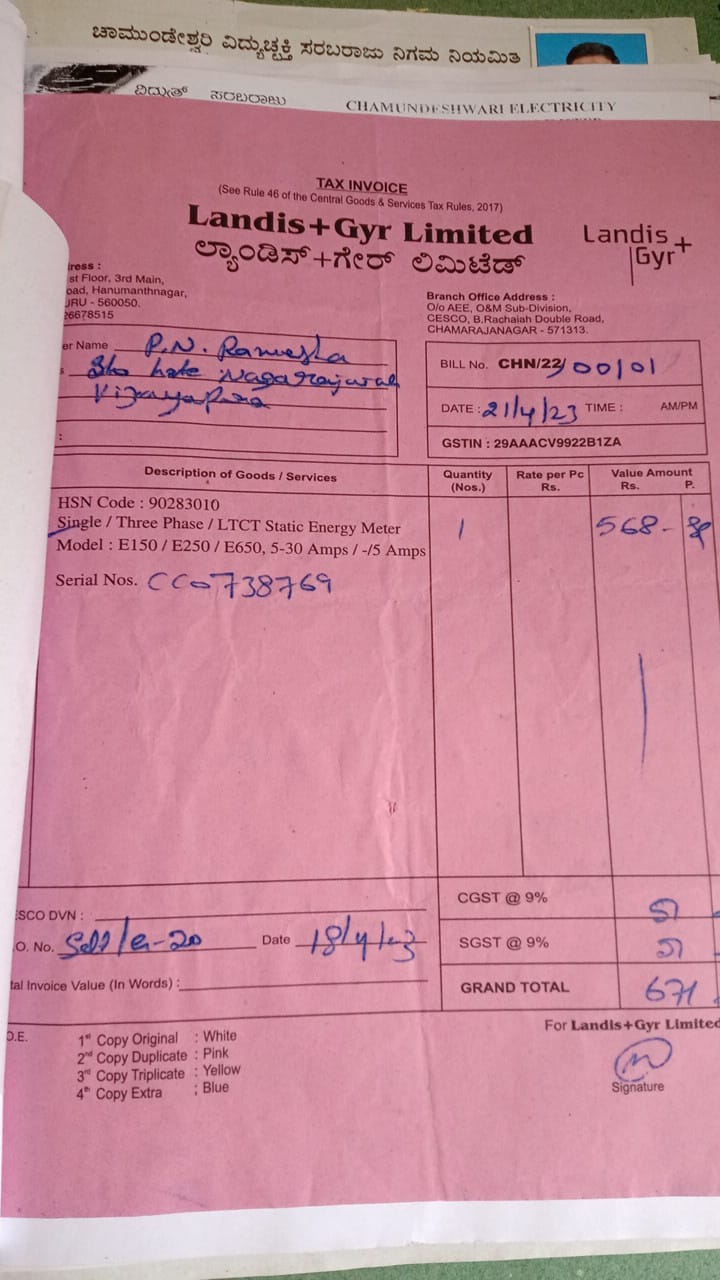 ಚಾಮುಂಡೇಶ್ವರಿ ವಿದ್ಯುಚ್ಛಕ್ತಿ ಸರಬರಾಜು ನಿಗಮ ನಿಯಮಿತ
ವಿದ್ಯುತ್ ಸರಬರಾಜು CHAMUNDESHWARI ELECTRICITY
TAX INVOICE
(See Rule 46 of the Central Goods & Services Tax Rules, 2017)
Landis+Gyr Limited
Landis+Gyr
ಲ್ಯಾಂಡಿಸ್+ಗೇರ್ ಲಿಮಿಟೆಡ್
ress :
st Floor, 3rd Main,
oad, Hanumanthnagar,
URU - 560050.
26678515
Branch Office Address :
O/o AEE, O&M Sub-Division,
CESCO, B.Rachaiah Double Road,
CHAMARAJANAGAR - 571313.
er Name P.N. Ramesha
BILL No. CHN/22/00101
DATE : 21/4/23 TIME : AM/PM
GSTIN : 29AAACV9922B1ZA
Description of Goods / Services Quantity (Nos.) Rate per Pc Rs. Value Amount Rs. P.
HSN Code : 90283010
Single / Three Phase / LTCT Static Energy Meter 1 568-
Model : E150 / E250 / E650, 5-30 Amps / -/5 Amps
Serial Nos. CC0738769
ESCO DVN :
CGST @ 9% 51
O. No. Date 18/4/23
SGST @ 9% 51
tal Invoice Value (In Words) :
GRAND TOTAL 671
O.E.
1st Copy Original : White
2nd Copy Duplicate : Pink
3rd Copy Triplicate : Yellow
4th Copy Extra : Blue
For Landis+Gyr Limited
Signature